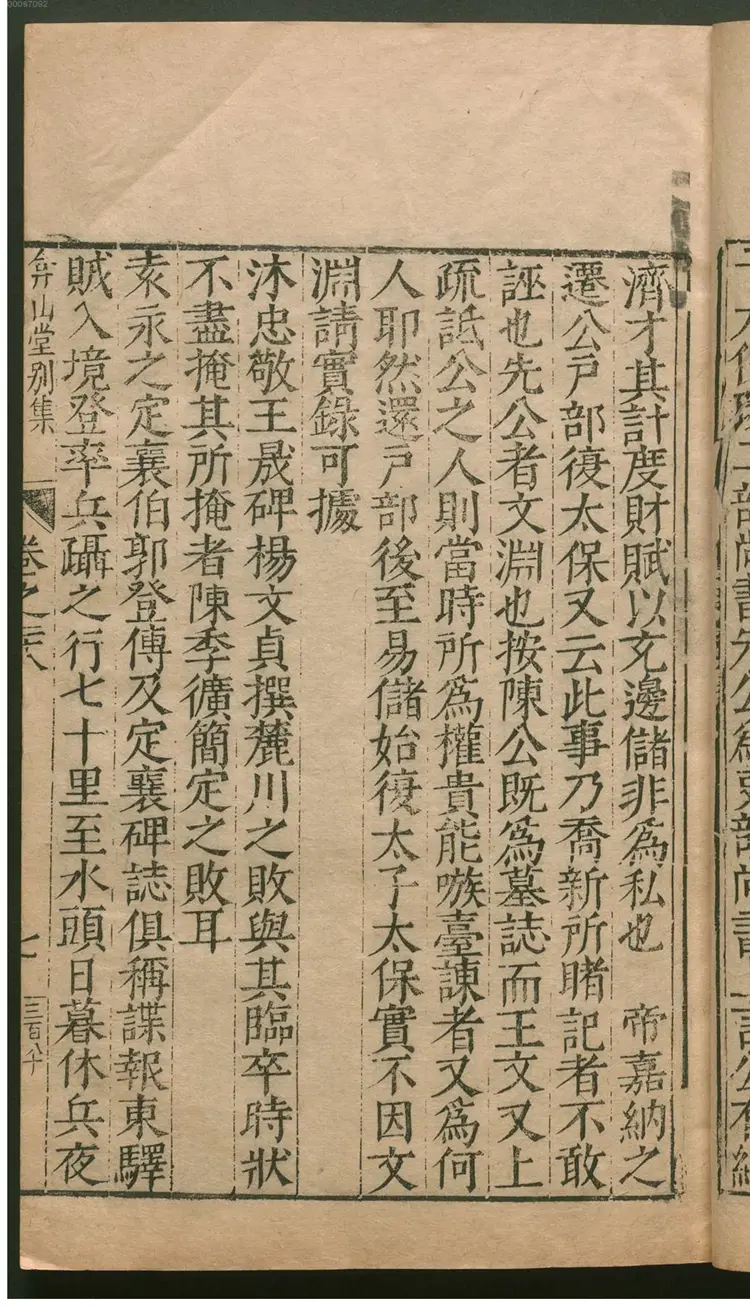 濟才其計度財賦以充邊儲非為私也　帝嘉納之
遷公戶部復太保又云此事乃喬新所睹記者不敢
誣也先公者文淵也按陳公既為墓誌而王文又上
疏詆公之人則當時所為權貴能嗾臺諫者又為何
人耶然還戶部後至易儲始復太子太保實不因文
淵請實錄可據
沐忠敬王晟碑楊文貞撰麓川之敗與其臨卒時狀
不盡掩其所掩者陳季獷簡定之敗耳
袁永之定襄伯郭登傳及定襄碑誌俱稱諜報東驛
賊入境登率兵躡之行七十里至水頭日暮休兵夜
弇山堂別集
卷之
七
三百八十
00067092